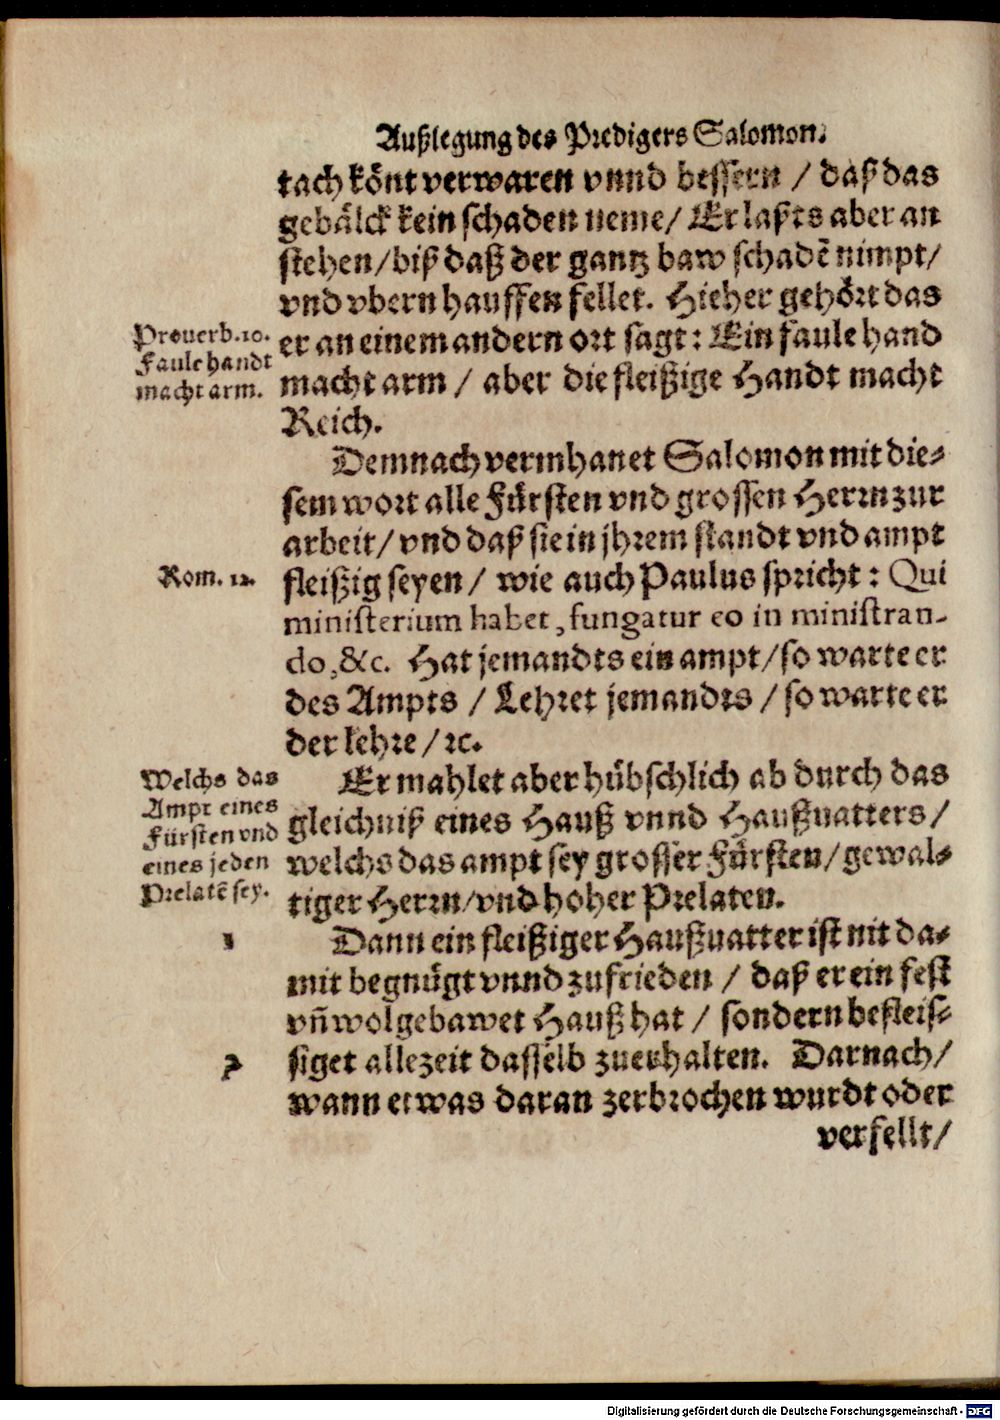 Außlegung des Predigers Salomon.
tach könt verwaren vnnd bessern / daß das
gebälck kein schaden neme / Er laßts aber an
stehen / biß daß der gantz baw schadẽ nimpt /
vnd vbern hauffen fellet. Hieher gehört das
Prouerb. 10.
Faule handt
macht arm.
er an einem andern ort sagt: Ein faule hand
macht arm / aber die fleißige Handt macht
Reich.
Demnach vermhanet Salomon mit die-
sem wort alle Fürsten vnd grossen Herrn zur
arbeit / vnd daß sie in jhrem standt vnd ampt
Rom. 12.
fleißig seyen / wie auch Paulus spricht: Qui
ministerium habet, fungatur eo in ministran-
do, &c. Hat jemandts ein ampt / so warte er
des Ampts / Lehret jemandts / so warte er
der lehre / ꝛc.
Welchs das
Ampt eines
Fürsten vnd
eines jeden
Prelatẽ sey.
Er mahlet aber hübschlich ab durch das
gleichniß eines Hauß vnnd Haußuatters /
welchs das ampt sey grosser Fürsten / gewal-
tiger Herrn / vnd hoher Prelaten.
1
Dann ein fleißiger Haußuatter ist nit da-
mit begnügt vnnd zufrieden / daß er ein fest
vñ wolgebawet Hauß hat / sondern befleis-
2
siget allezeit dasselb zuerhalten. Darnach /
wann etwas daran zerbrochen wurdt oder
verfellt /
Digitalisierung gefördert durch die Deutsche Forschungsgemeinschaft - DFG